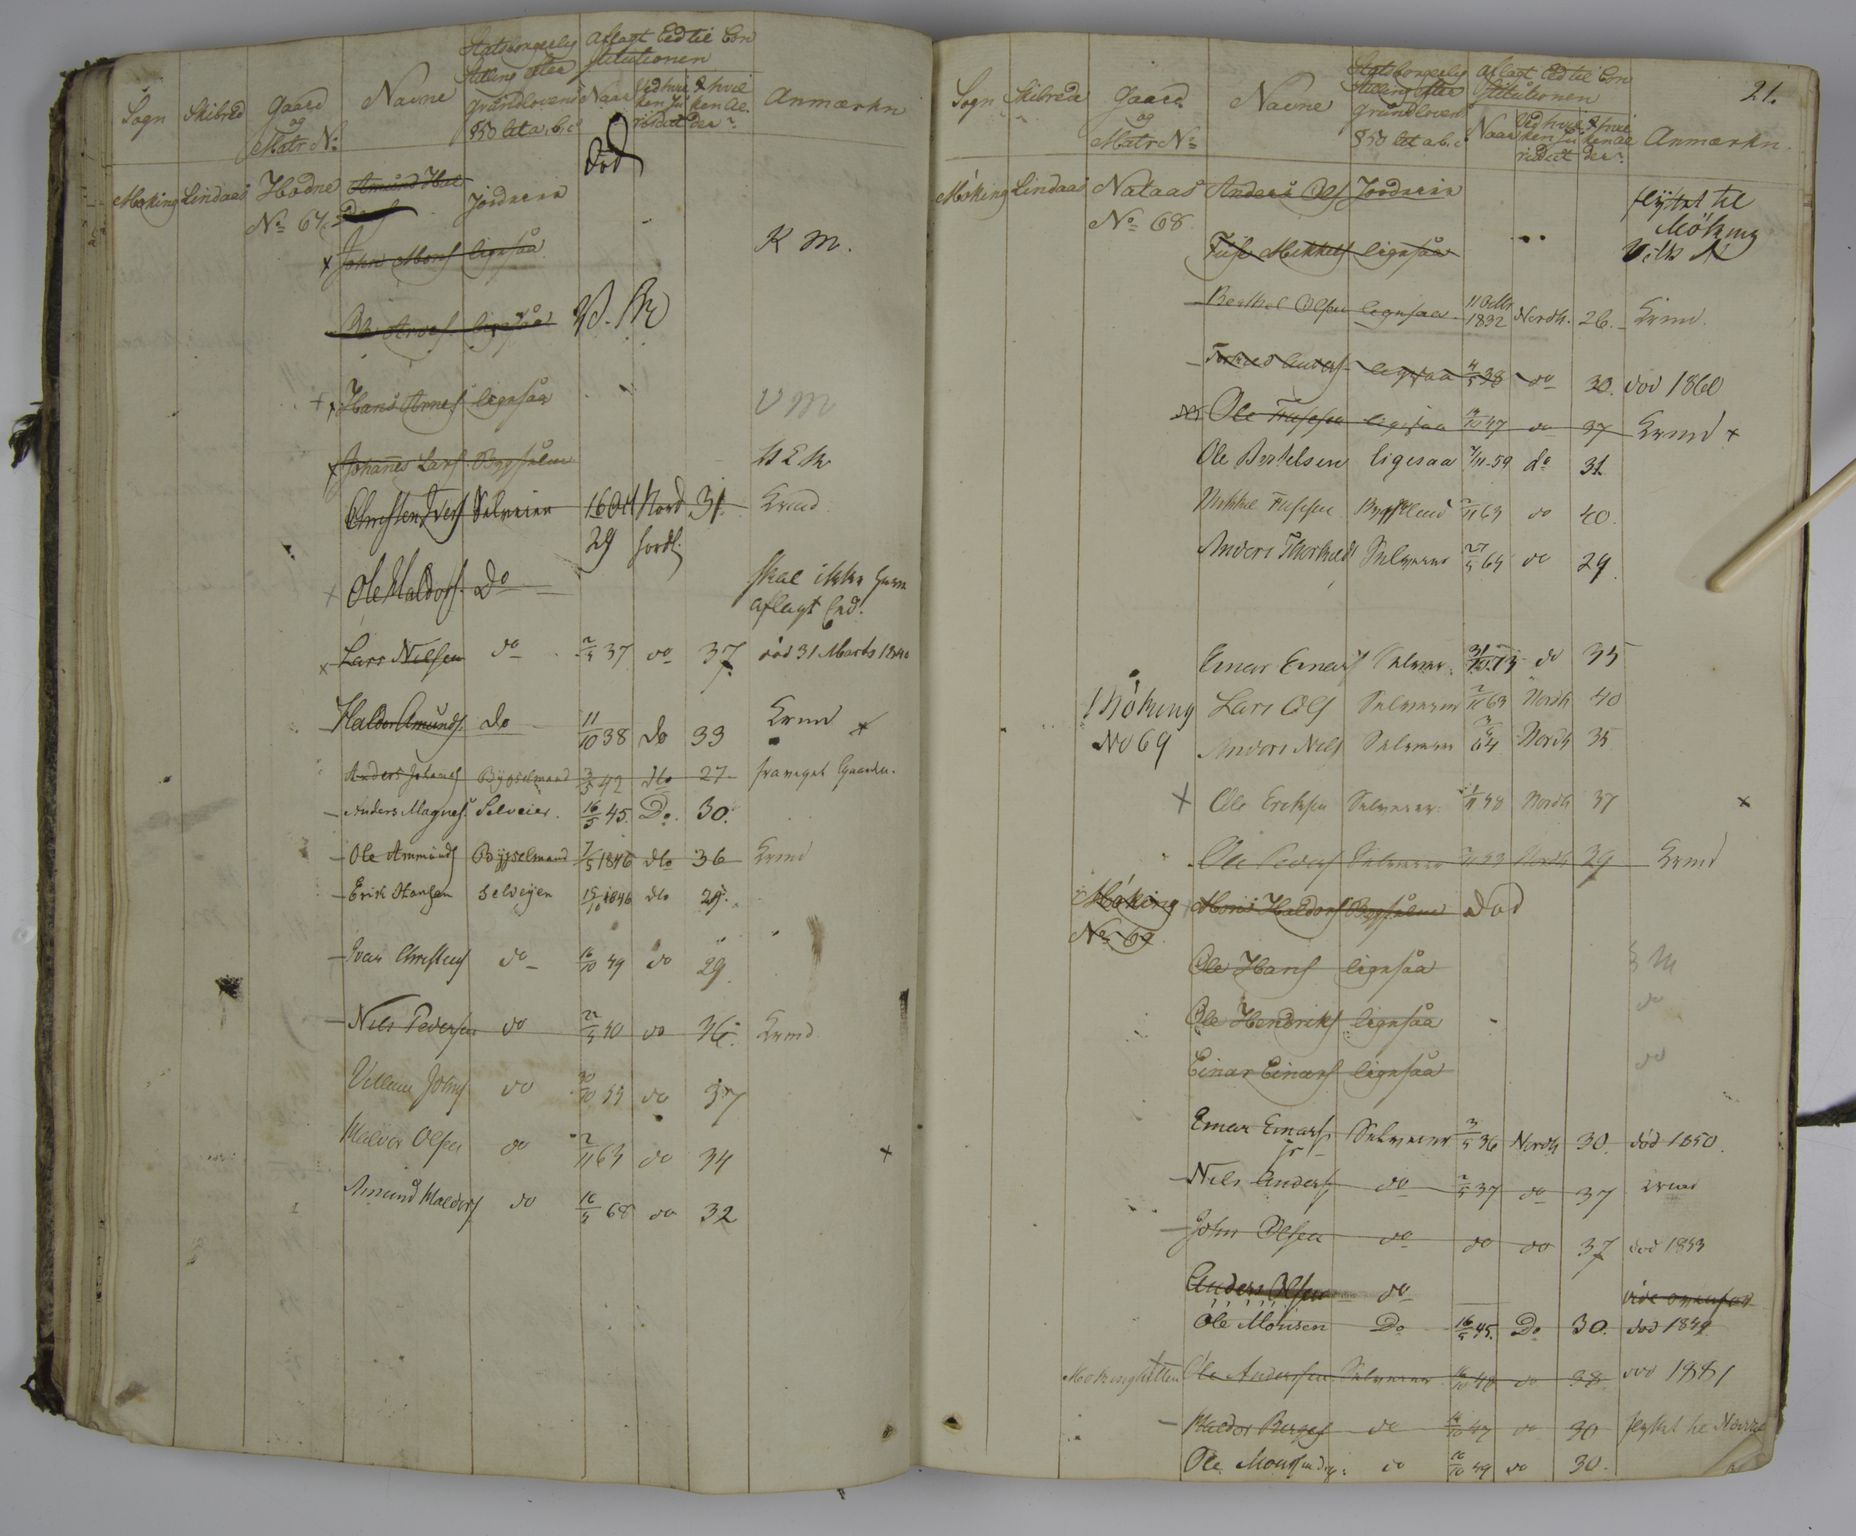 Sogn Skibred Gaard og Matr No Navne Statsborgerlig Stilling efter Grundlovens §50 lit a, b, c Aflagt Eed til Constitutionen Naar Ved hvilken Jurisdict I hvilken Alder Anmærkn
Møking Lindaas Hodne Amund Hal Jordeier død
No 67
x John Mons ligesaa K M.
Ole Arnes ligesaa
x Hans Arnes ligesaa V M
x Johannes Lars Bygselm
Christen Ivers Selveier 16 Oct 29 Nordhordl. 31. Exmd
Ole Haldors Do skal ikke have aflagt Eed.
x Lars Nilsen do 2/5 37 do 37 død 31 Marts 1840
Haldor Amunds do 11/10 38 do 33 Exmd x
Anders Johans Bygselmand 3/5 42 do 27 fraveget Gaarden.
Anders Magnes Selveier. 16/5 45. Do. 30.
Ole Ammunds Bygselmand 7/5 1846 do 36 Exmd
Erik Hansen Selveijer 15/10 1846 do 29.
Ivar Christens do 16/10 49 do 29
Nils Pedersen do 22/5 50 do 36. Exmd
Villum Johns do 30/10 55 do 37
Haldor Olsen do 2/11 63 do 34 x
Amund Haldors do 16/5 68 do 32
21.
Sogn Skibrede Gaard og Matr No Navne Statsborgerlig Stilling efter Grundloven §50 lit a b. c Aflagt Eed til Constitutionen Naar Ved hvilken Jurisdict I hvilken Alder Anmærkn.
Møking Lindaas Nataas Anders Ols Jordeier flyttet til Møking
No 68.
Tufe Mikkels ligesaa
Berthel Olsen ligesaa 11 Octbr 1832 Nordh. 26. Exmd.
Anders ligesaa 4/5 38 do 30. død 1860
Ole Tufesen ligesaa 47 do 37 Exmd x
Ole Bertelsen ligesaa 7/11-59 do 31
Mikkel Tufesen Bygselmd 2/11 63 do 40.
Anders Selveier 27/5 64 do 29.
Einar Einars Selveier 31/10 73 do 35
Møking No 69 Lars Ols Selveier 2/11 63 Nordh 40
Anders Nils Selveier 64 Nordh 35
x Ole Eriksen Selveier Nordh 37 x
Ole Peders Selveier Nordh 39 Exmd
Møking No 69 Mons Haldors Bygselm død
Ole Hans ligesaa M
Ole Hendriks ligesaa do
Einar Einars ligesaa do
Einar Einars jr Selveier 3/5 36 Nordh 30. død 1850.
Nils Anders do 2/5 37 do 37 Exmd
John Olsen do do do 37 død 1853
Anders Olsen do vide ovenfor
Ole Monsen Do 16/5 45. Do 30. død 1849
Ole Andersen Selveier 16/10 48 do 38 død 1881
Haldor Børges do 47 do 30 flyttet til
Ole Mons do 16/10 49 do 30.